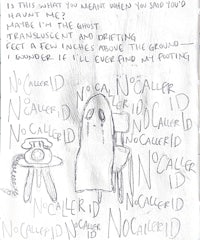 IS THIS WHAT YOU MEANT WHEN YOU SAID YOU'D
HAUNT ME?
MAYBE I'M THE GHOST
TRANSLUSCENT AND DRIFTING
FEET A FEW INCHES ABOVE THE GROUND—
I WONDER IF I'LL EVER FIND MY FOOTING
NO CALLER ID
NO CA
NO CALLER
ID
NO CALLER ID
LLER ID
NO CALLER ID
NO CALLER ID
NO CALLER ID
NO CALLER
ID
NO CALLER ID
NO CALLER ID
NO CALLER ID
NO CALLER ID
NO CALLER ID